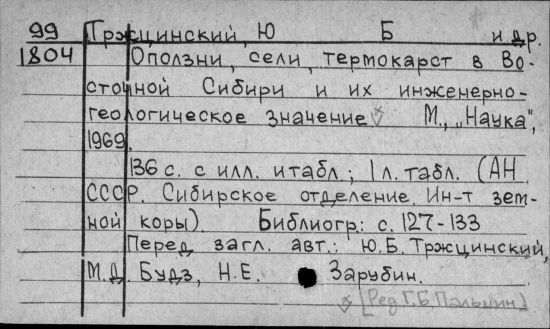 99 Тржцинский, Ю Б и др.
1804 Оползни, сели, термокарст в Во-
сточной Сибири и их инженерно-
геологическое значение М., „Наука",
1969.
136 с. с илл. и табл.; 1 л. табл. (АН
СССР. Сибирское отделение. Ин-т зем-
ной коры). Библиогр: с. 127-133
Перед загл. авт.: Ю.Б. Тржцинский,
М.Д. Будз, Н.Е. Зарубин.
[Ред Г.Б. Пальшин]